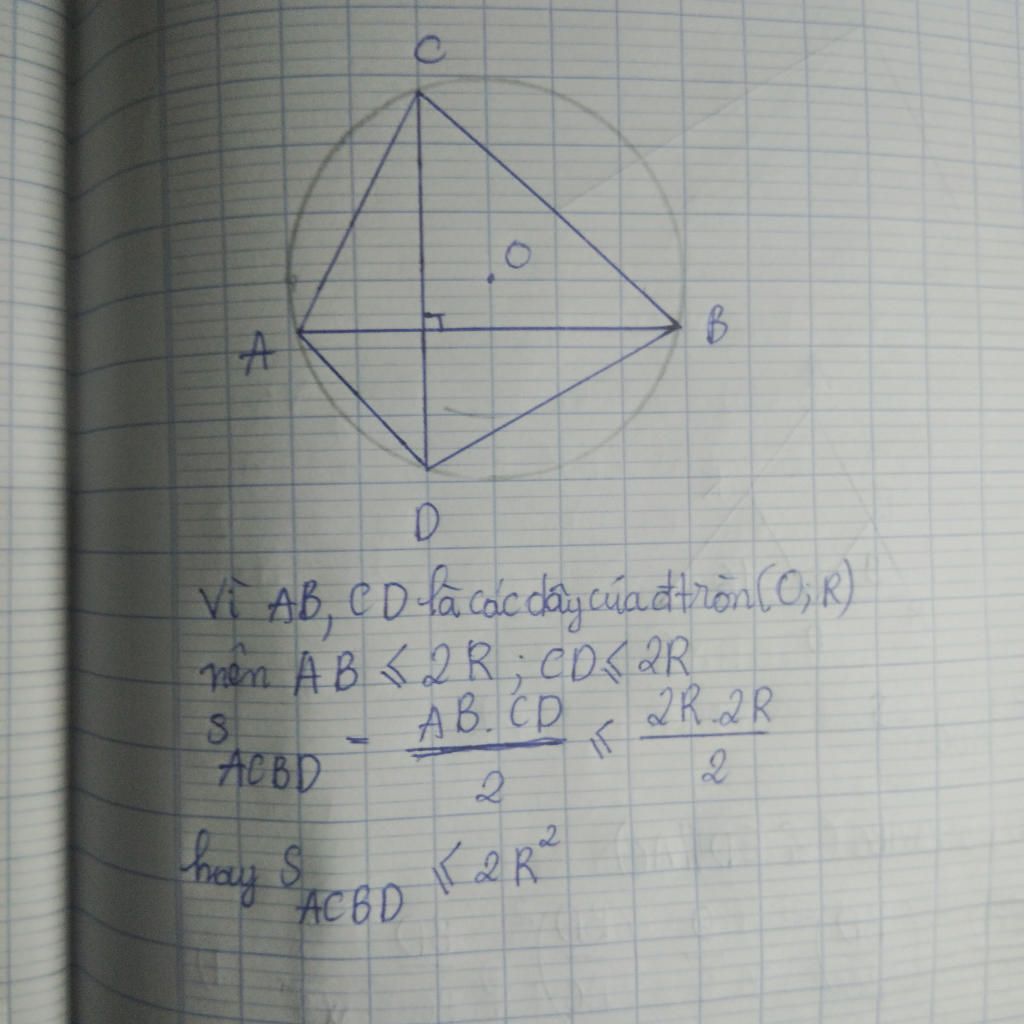 C
O
A
B
D
Vì AB, CD là các dây của đtròn (O; R)
nên AB ⩽ 2R ; CD ⩽ 2R
S_ACBD = AB.CD / 2 ⩽ 2R.2R / 2
hay S_ACBD ⩽ 2R²